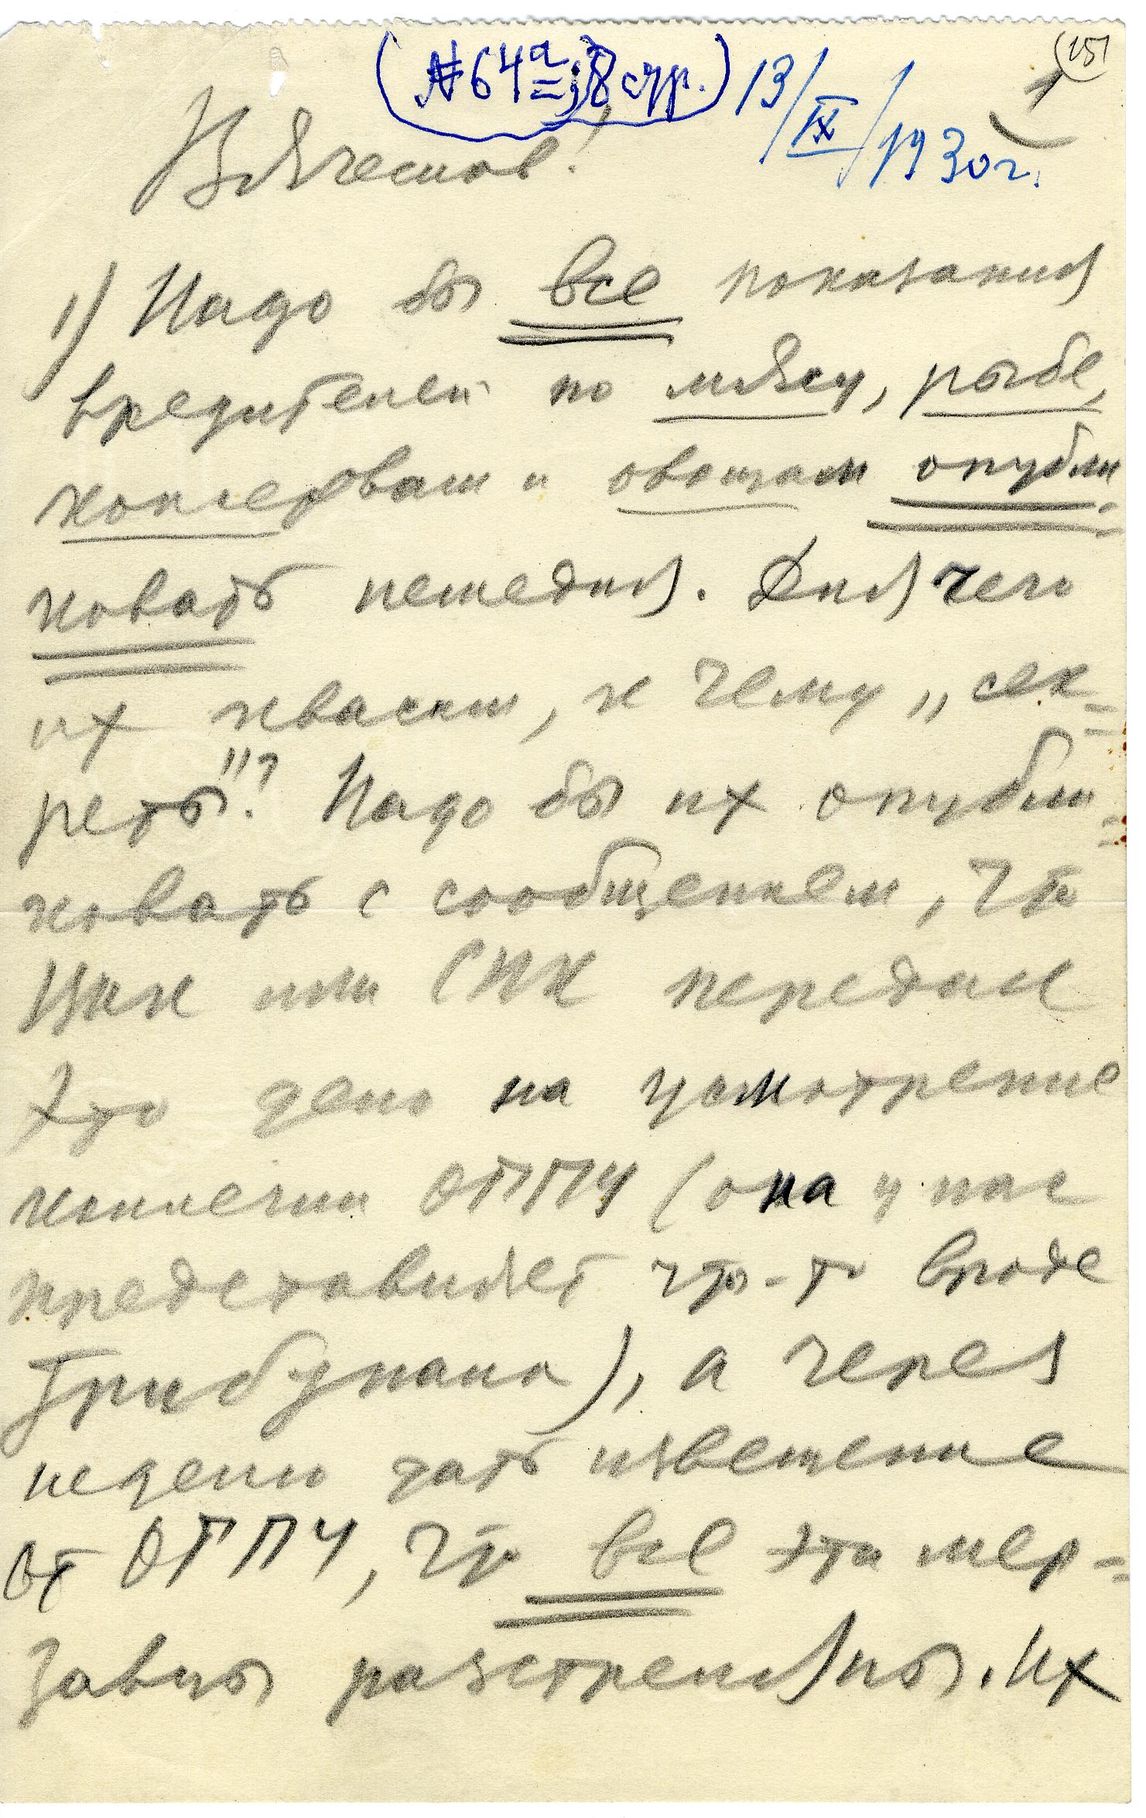 (№ 64а; 8 стр.) 13/IX/1930 г.
1
Вячеслав!
1) Надо бы все показания
вредителей по мясу, рыбе,
консервам и овощам опубли-
ковать немедля. Для чего
их квасим, к чему „сек-
реты"? Надо бы их опубли-
ковать с сообщением, что
ЦИК или СНК передали
это дело на усмотрение
коллегии ОГПУ (она у нас
представляет что-то вроде
трибунала), а через
неделю дать извещение
от ОГПУ, что все эти мер-
завцы расстреляны. Их